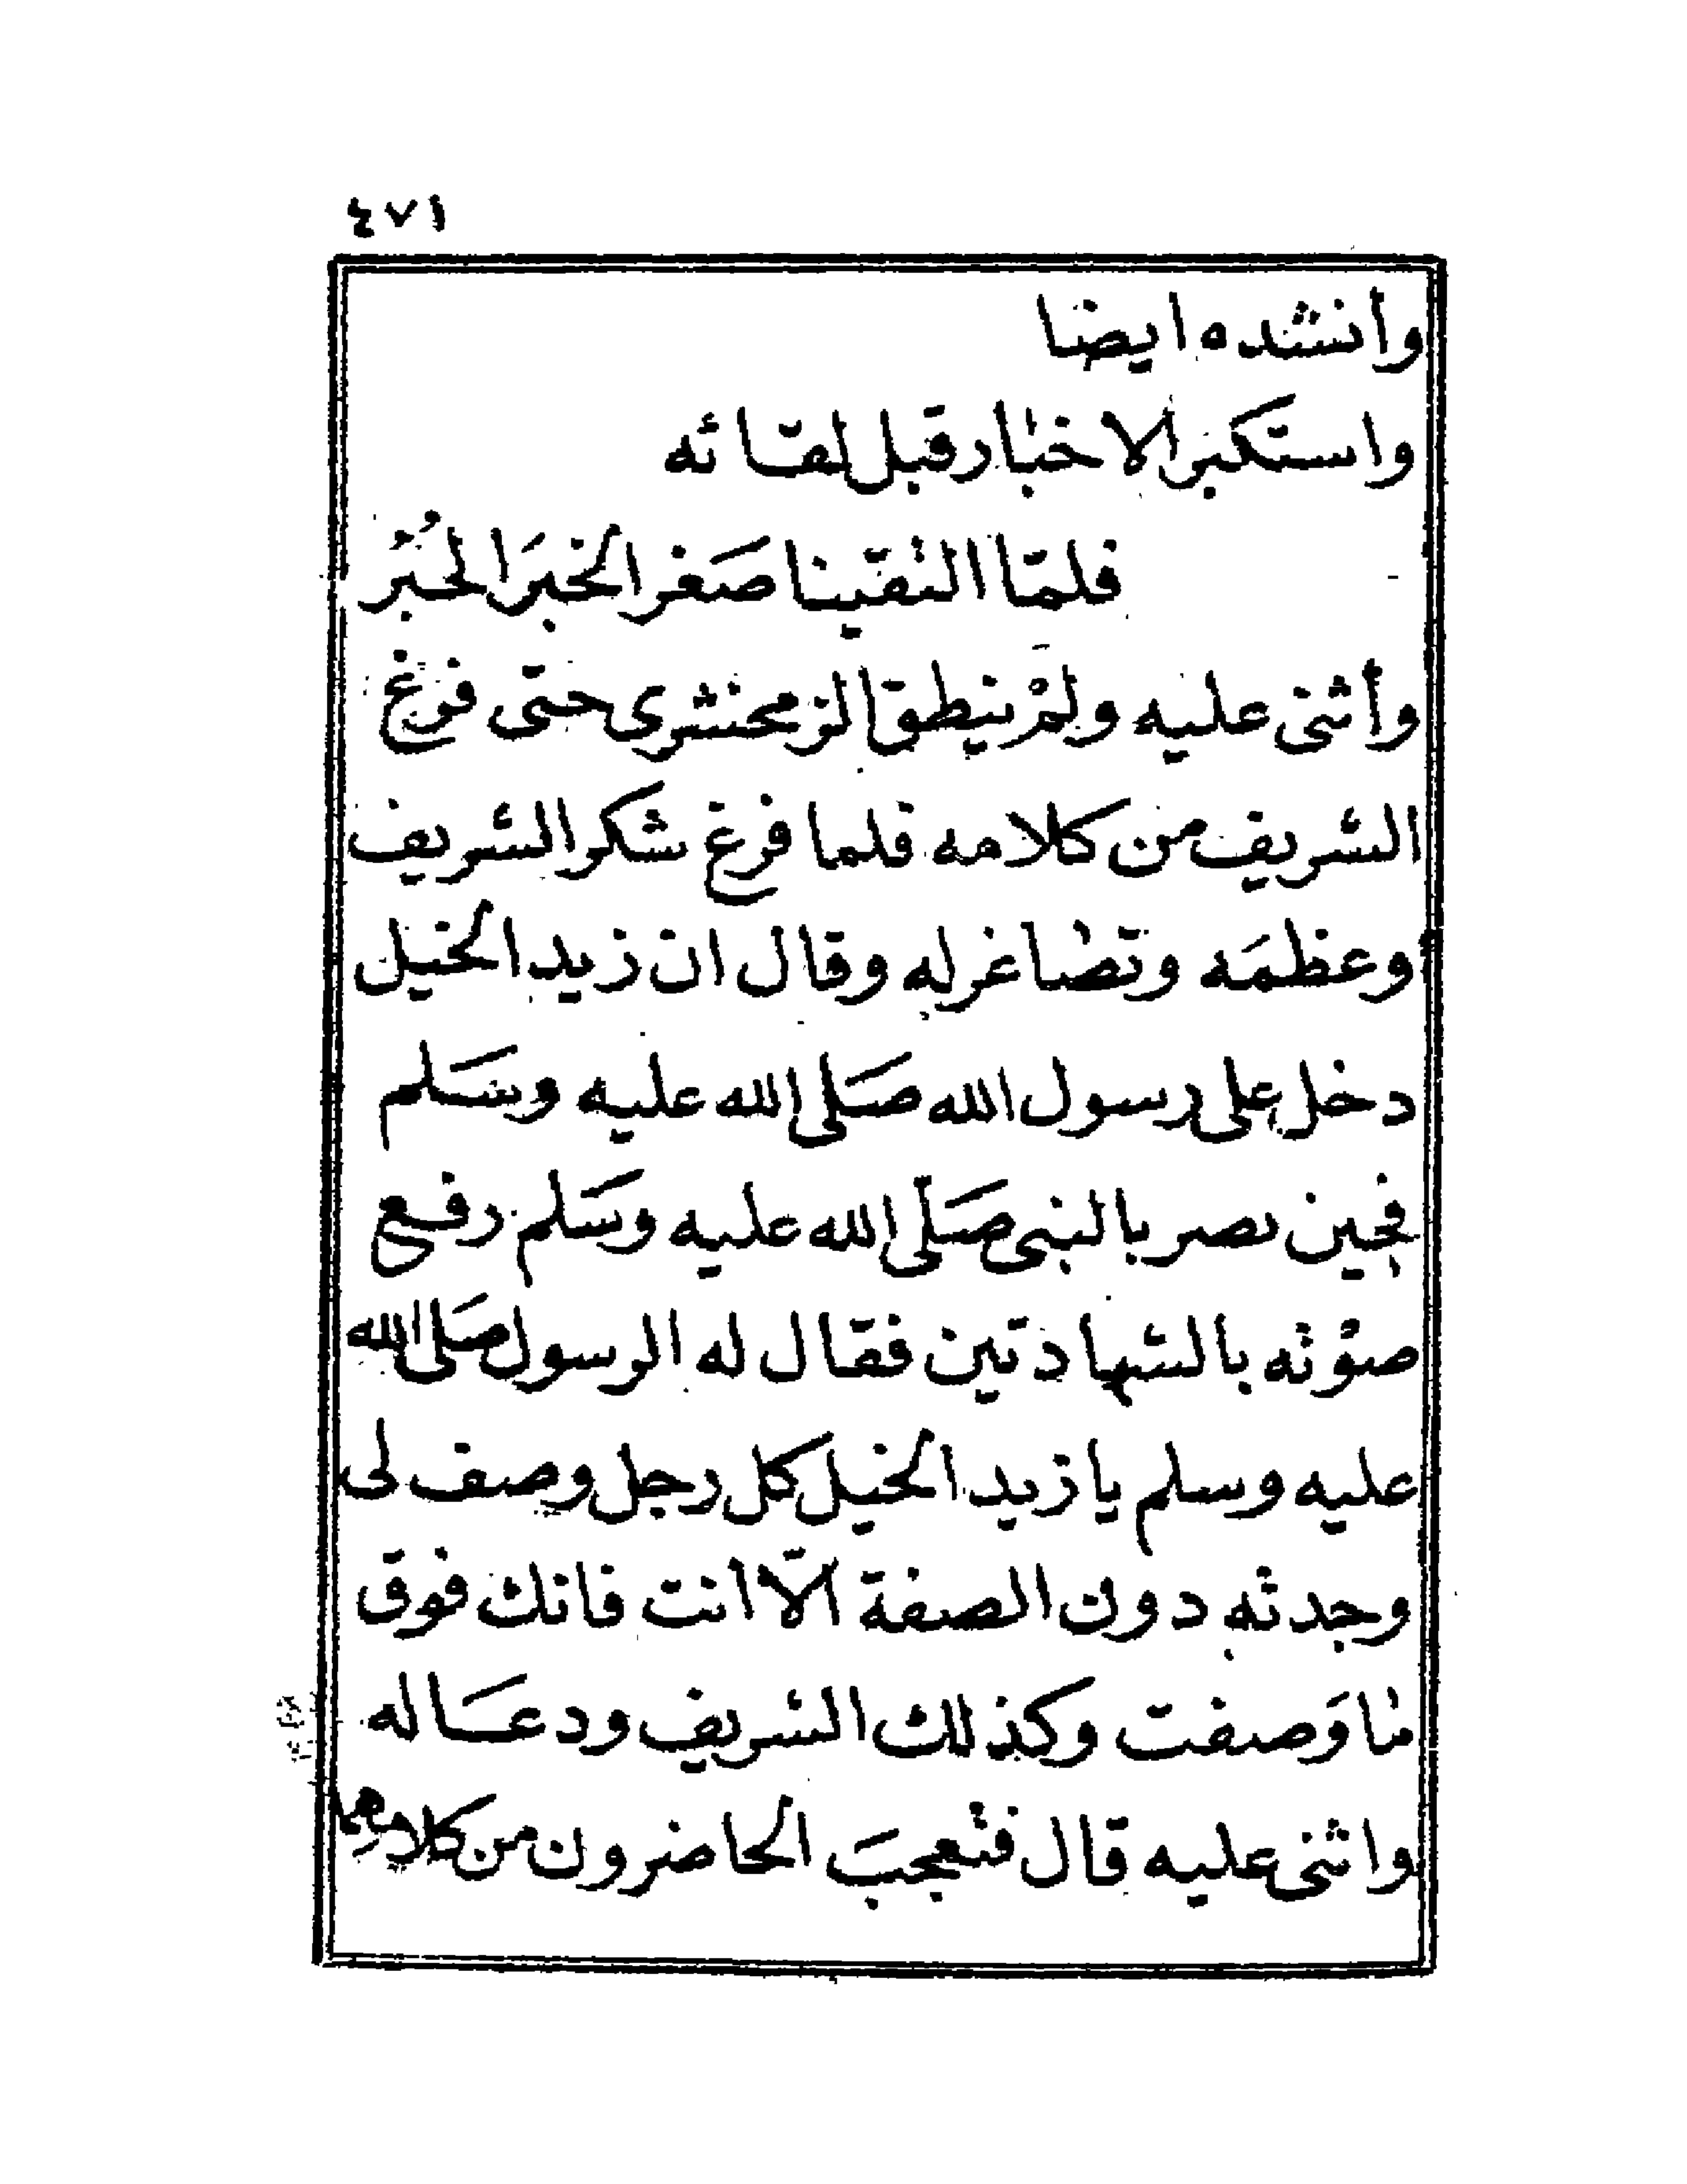 ٤٧١
وأنشده ايضا
واستكبر الاخبار قبل لقائه
فلمّا التقينا صَغر الخبَر الخُبْر
وأثنى عليه ولمْ ينطق الزمخشرى حتى فرغ
الشريف من كلامه فلما فرغ شكر الشريف
وعظمَه وتصاغر له وقال ان زيد الخيل
دخل على رسول الله صَلى الله عليه وسَلم
فحين بصر بالنبى صَلّى الله عليه وسَلم رفع
صوْته بالشهادتين فقال له الرسول صَلى الله
عليه وسلم يا زيد الخيل كل رجل وصف لى
وجدته دون الصفة الاّ انت فانك فوق
ما وَصفت وكذلك الشريف ودعَا له
واثنى عليه قال فتعجبَ الحاضرون من كلامهما